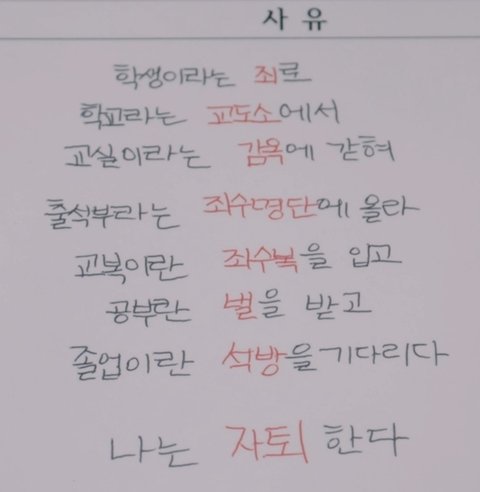 사유
학생이라는 죄로
학교라는 교도소에서
교실이라는 감옥에 갇혀
출석부라는 죄수명단에 올라
교복이란 죄수복을 입고
공부란 벌을 받고
졸업이란 석방을 기다리다
나는 자퇴 한다